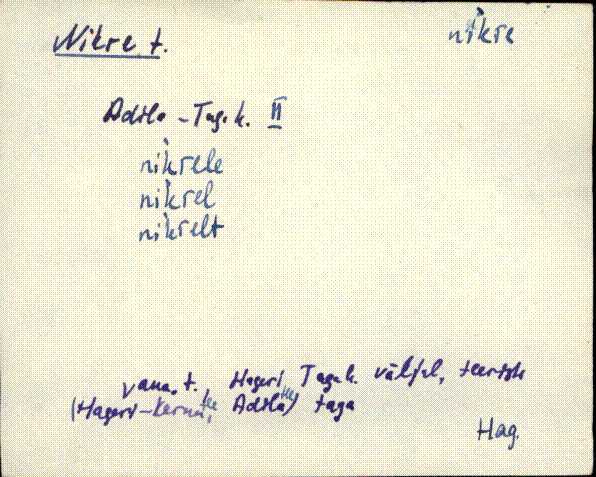 Nikre t.
nìkre
Adila - Tag.k. II
nìkrele
nìkrel
nìkrelt
vana. t., Hageri Tagak. väljal, teeristi
(Hageri-Kernu, Adila) taga
Hag.